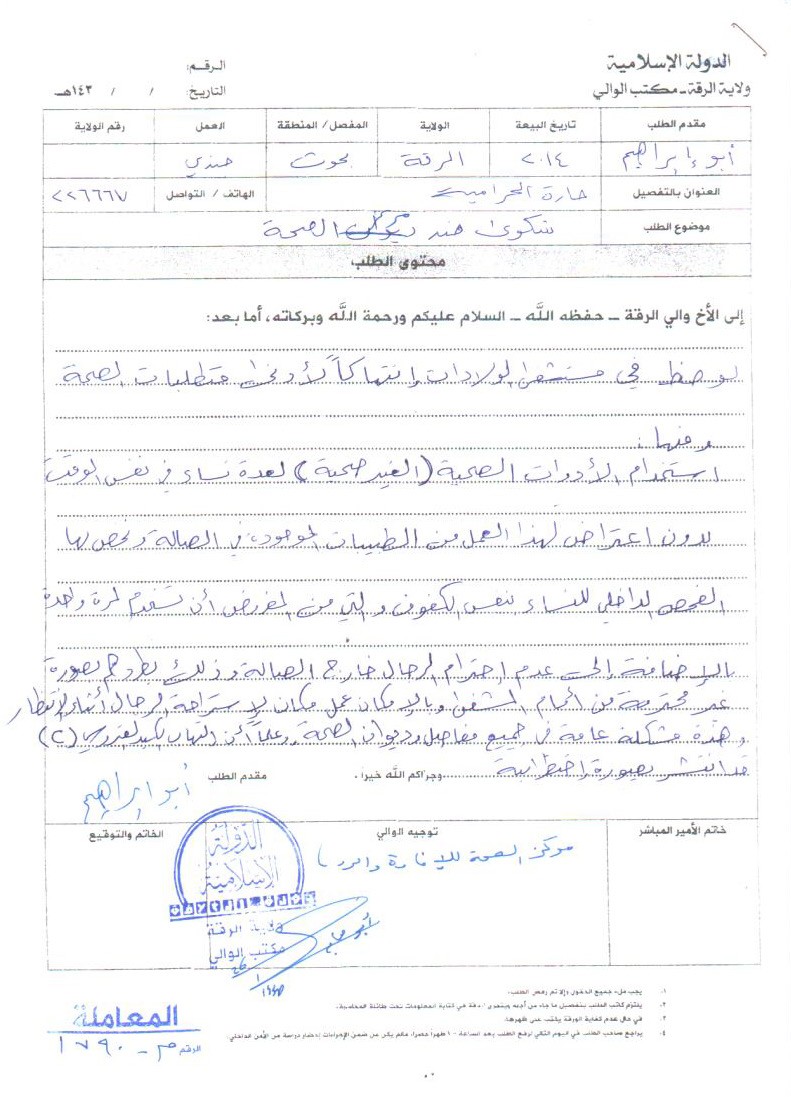 الدولة الإسلامية
ولاية الرقة - مكتب الوالي
الرقم:
التاريخ: / / ١٤٣هـ
مقدم الطلب
تاريخ البيعة
الولاية
المفصل / المنطقة
العمل
رقم الولاية
أبو إبراهيم
٢٠١٤
الرقة
بحوث
جندي
العنوان بالتفصيل
حارة الحرامية
الهاتف / التواصل
٢٢٦٦٦٧
موضوع الطلب
شكوى ضد الصحة
محتوى الطلب
إلى الأخ والي الرقة - حفظه الله - السلام عليكم ورحمة الله وبركاته، أما بعد:
لوحظ في مستشفى الولادات إنتهاكاً لأدنى متطلبات الصحة
ومنها:
استخدام الأدوات الصحية (الغير صحية) لعدة نساء في نفس الوقت
بدون اعتراض لهذا العمل من الطبيبات الموجودة في الصالة ونخص بها
الفحص الداخلي للنساء بنفس الكفوف والتي من المفروض أن تستخدم لمرة واحدة
بالإضافة إلى عدم احترام الرجال خارج الصالة وذلك بطردهم بصورة
غير محترمة من أمام المشفى وبالإمكان عمل مكان لإستراحة الرجال أثناء الإنتظار
وهذه مشكلة عامة في جميع مفاصل وديوان الصحة وعلماً أن إلتهاب الكبد الفيروسي (C)
قد انتشر بصورة
وجزاكم الله خيراً.
مقدم الطلب
أبو إبراهيم
خاتم الأمير المباشر
توجيه الوالي
الخاتم والتوقيع
مركز الصحة للإفادة والرد
الدولة
الإسلامية
ولاية الرقة
مكتب الوالي
١. يجب ملء جميع الحقول وإلا تم رفض الطلب.
٢. يلتزم كاتب الطلب بتفصيل ما جاء من أجله ويتحرى الدقة في كتابة المعلومات تحت طائلة المحاسبة.
٣. في حال عدم كفاية الورقة يكتب على ظهرها.
٤. يراجع صاحب الطلب في اليوم التالي لرفع الطلب بعد الساعة ١٠ ظهراً حصراً، مالم يكن من ضمن الإجراءات إحضار دراسة من الأمن الداخلي.
المعاملة
الرقم م - ١٧٩٠